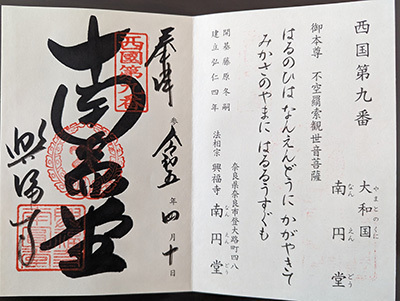 西国第九番
大和国
やまとのくに
南円堂
なんえんどう
御本尊 不空羂索観世音菩薩
はるのひは なんえんどうに かがやきて
みかさのやまに はるるうすぐも
開基藤原冬嗣
建立弘仁四年
奈良県奈良市登大路町四八
法相宗 興福寺 南円堂
なんえんどう
奉拝
令和五年四月十日
西國第九番
南圓堂
興福寺